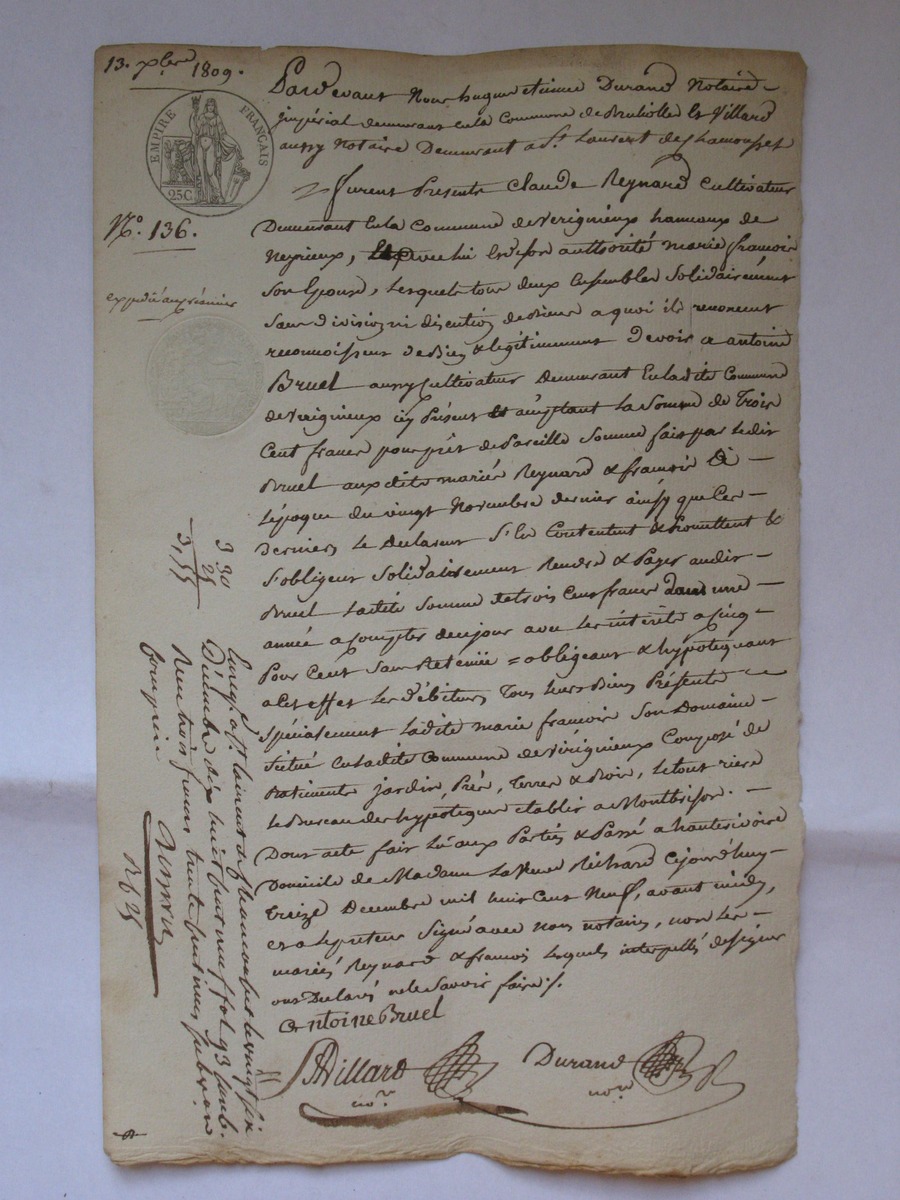 13. xbre 1809.
EMPIRE FRANÇAIS
25 C.
No. 136.
expedié au créancier
Pardevant Nous hugue etienne Durand Notaire
impérial demeurant en la Commune de Brullolle & Villard
aussy Notaire Demeurant a St. Laurent de Chamousset
furent Presents Claude Reynard Cultivateur
Demeurant en la Commune de verignieux hameaux de
Neyrieux, & avec lui & de son authorité marie francois
Son Epouse, Lesquels tous deux Ensembles Solidairement
Sans division ni discution de biens a quoi ils renoncent
reconnoissent de Bien & légitimement devoir a antoine
Bruel aussy Cultivateur Demeurant En ladite Commune
de verignieux icy Présent & acceptant La Somme de Trois
Cent francs pour prêt de Pareille Somme fait par ledit
Bruel auxdits mariés Reynard & francois
L'époque du vingt Novembre dernier ainsy que Ces
Derniers Le Declarent S'en Contentent & Promettent &
S'obligent Solidairement Rendre & Payer audit
Bruel Ladite Somme de trois Cent francs dans une
année a Compter de ce jour avec les intérêts a Cinq
Pour Cent Sans Retenüe = obligeant & hypotéquant
a Cet effet Les débiteurs Tous leurs Biens Présents
Spécialement Ladite marie francois Son Domaine
Situé en Ladite Commune de Vérignieux Composé de
Batiments jardin, Prés, Terres & Bois, Le tout riere
Le Bureau des hypoteques etablis a Montbrison.
Dont acte fait Lû aux Parties & Passé a hauterivoire
Domicile de Madame La Veuve Richard Cejourd'huy
treize Decembre mil huit Cent Neuf, avant midy,
et a Le preteur Signé avec nous notaires, non Les
mariés Reynard & francois Lesquels interpellés de signer
ont Declaré ne le Savoir faire ./.
Antoine Bruel
Villard
nore
Durand
nore
3 30
25
3,55
Enregé. a St. laurent de chamousset le vingt six
Décembre dix huit cent neuf fol 93
Reçu trois francs trente centimes subvon
comprise
R f 25